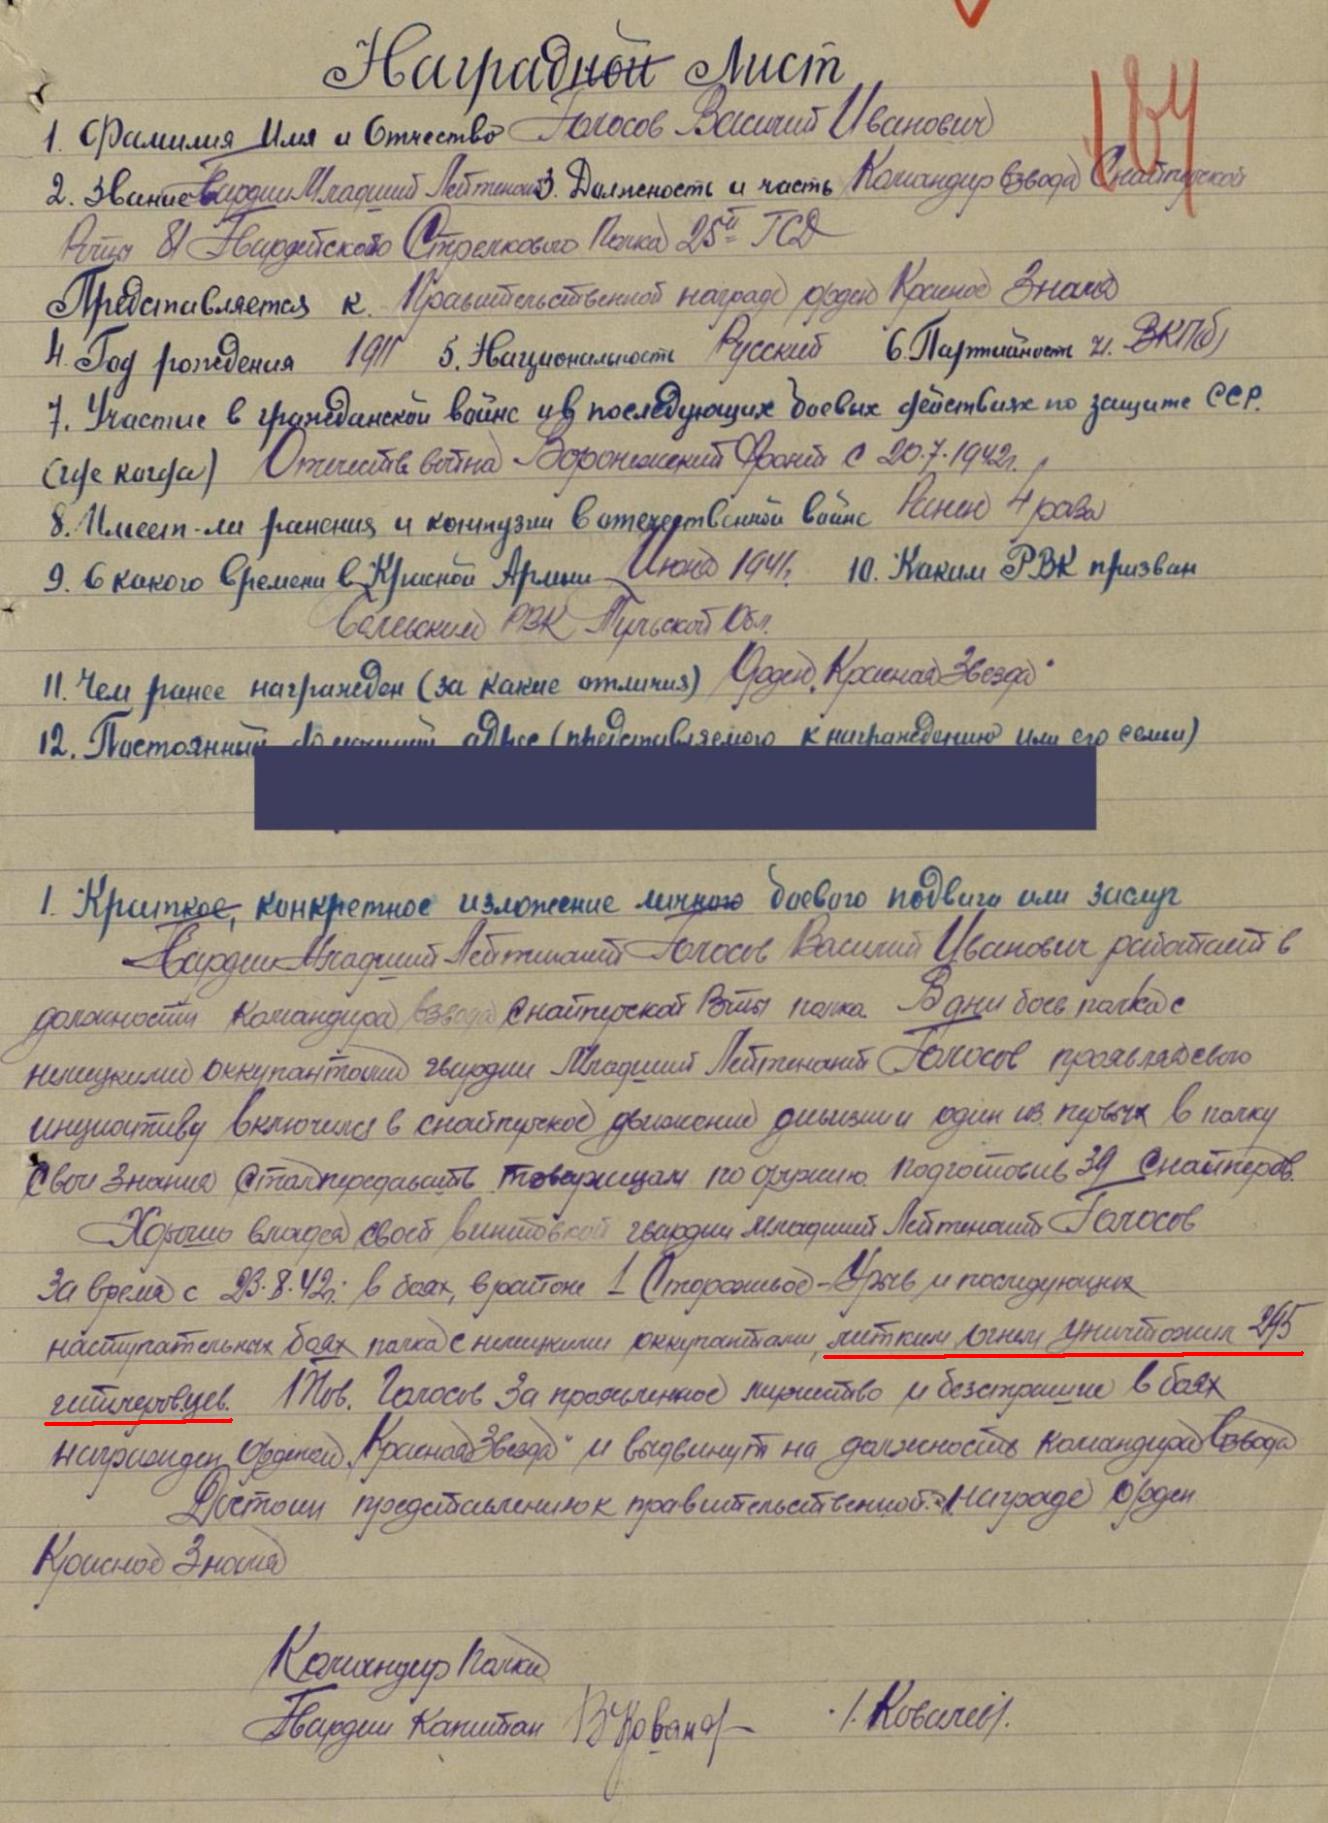 Наградной Лист
1. Фамилия Имя и Отчество Голосов Василий Иванович
2. Звание Гвардии Младший Лейтенант 3. Должность и часть Командир взвода Снайперской
Роты 81 Гвардейского Стрелкового Полка 25й ГСД
Представляется к. Правительственной награде орден Красное Знамя
4. Год рождения 1911 5. Национальность Русский 6. Партийность чл. ВКП(б)
7. Участие в гражданской войне и в последующих боевых действиях по защите СССР.
(где когда) Отечеств война Воронежский Фронт с 20.7.1942г.
8. Имеет-ли ранения и контузии в отечественной войне Ранен 4 раза
9. С какого времени в Красной Армии Июня 1941г. 10. Каким РВК призван
РВК Тульской Обл.
11. Чем ранее награжден (за какие отличия) Орден "Красная Звезда"
12. Постоянный домашний адрес (представляемого к награждению или его семьи)
164
1. Краткое, конкретное изложение личного боевого подвига или заслуг
Гвардии Младший Лейтенант Голосов Василий Иванович работает в
должности командира взвода снайперской Роты полка. В дни боев полка с
немецкими оккупантами гвардии Младший Лейтенант Голосов проявляя свою
инициативу включился в снайперское движение дивизии и один из первых в полку
свои знания стал передавать товарищам по оружию подготовив 39 снайперов.
Хорошо владея своей винтовкой гвардии младший Лейтенант Голосов
За время с 23.8.42г. в боях, в районе 1 Сторожевое-Урыв и последующих
наступательных боях полка с немецкими оккупантами, метким огнем уничтожил 245
гитлеровцев. Тов. Голосов За проявленное мужество и безстрашие в боях
награжден Орденом "Красная Звезда" и выдвинут на должность командира взвода
Достоин представлению к правительственной награде орден
Красное Знамя
Командир Полка
Гвардии Капитан